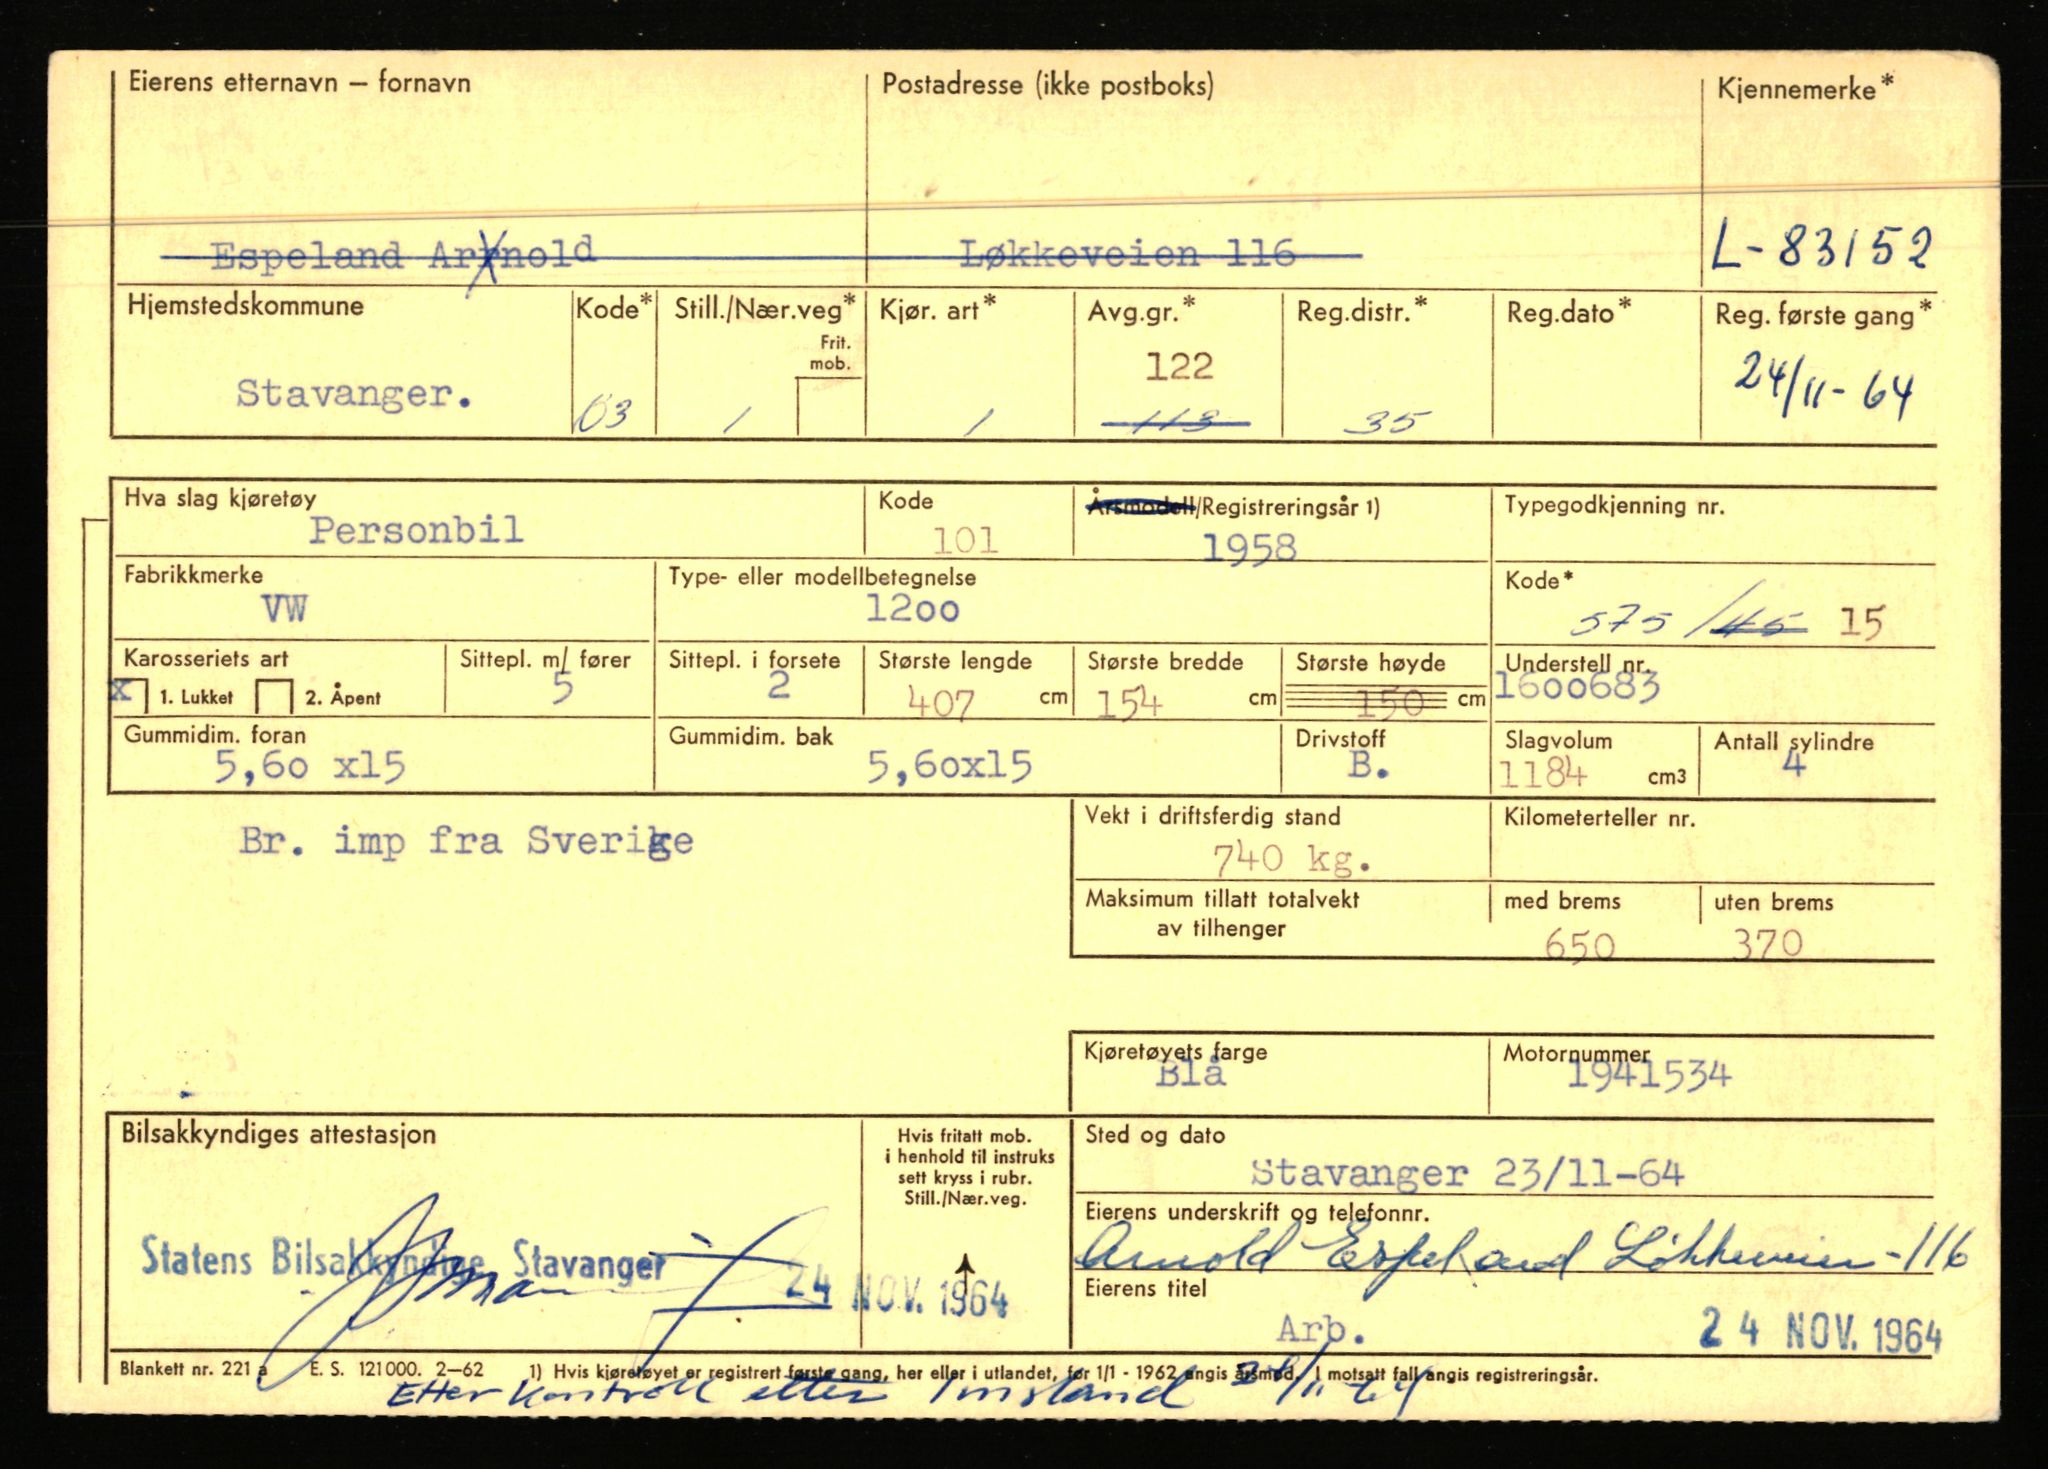 Eierens etternavn – fornavn Postadresse (ikke postboks) Kjennemerke*
Espeland Arnold Løkkeveien 116 L-83152
Hjemstedskommune Kode* Still./Nær.veg* Kjør. art* Avg.gr.* Reg.distr.* Reg.dato* Reg. første gang*
Frit.
mob.
122 24/11-64
Stavanger. 03 1 1 113 35
Hva slag kjøretøy Kode Årsmodell/Registreringsår 1) Typegodkjenning nr.
Personbil 101 1958
Fabrikkmerke Type- eller modellbetegnelse Kode*
VW 12oo 575 /45 15
Karosseriets art Sittepl. m/ fører Sittepl. i forsete Største lengde Største bredde Største høyde Understell nr.
x 1. Lukket 2. Åpent 5 2 407 cm 154 cm 150 cm 16oo683
Gummidim. foran Gummidim. bak Drivstoff Slagvolum Antall sylindre
5,6o x15 5,6ox15 B. 1184 cm3 4
Br. imp fra Sverige
Vekt i driftsferdig stand Kilometerteller nr.
740 kg.
Maksimum tillatt totalvekt med brems uten brems
av tilhenger
650 370
Kjøretøyets farge Motornummer
Blå 1941534
Bilsakkyndiges attestasjon
Hvis fritatt mob.
i henhold til instruks
sett kryss i rubr.
Still./Nær.veg.
Sted og dato
Stavanger 23/11-64
Eierens underskrift og telefonnr.
Arnold Espeland Løkkeveien-116
Statens Bilsakkyndige, Stavanger
24 NOV. 1964
Eierens titel
Arb.
24 NOV. 1964
Blankett nr. 221 a E. S. 121000. 2–62 1) Hvis kjøretøyet er registrert første gang, her eller i utlandet, før 1/1 - 1962 angis årsmod. I motsatt fall angis registreringsår.
Etter kontroll etter Innsland 24/11-64